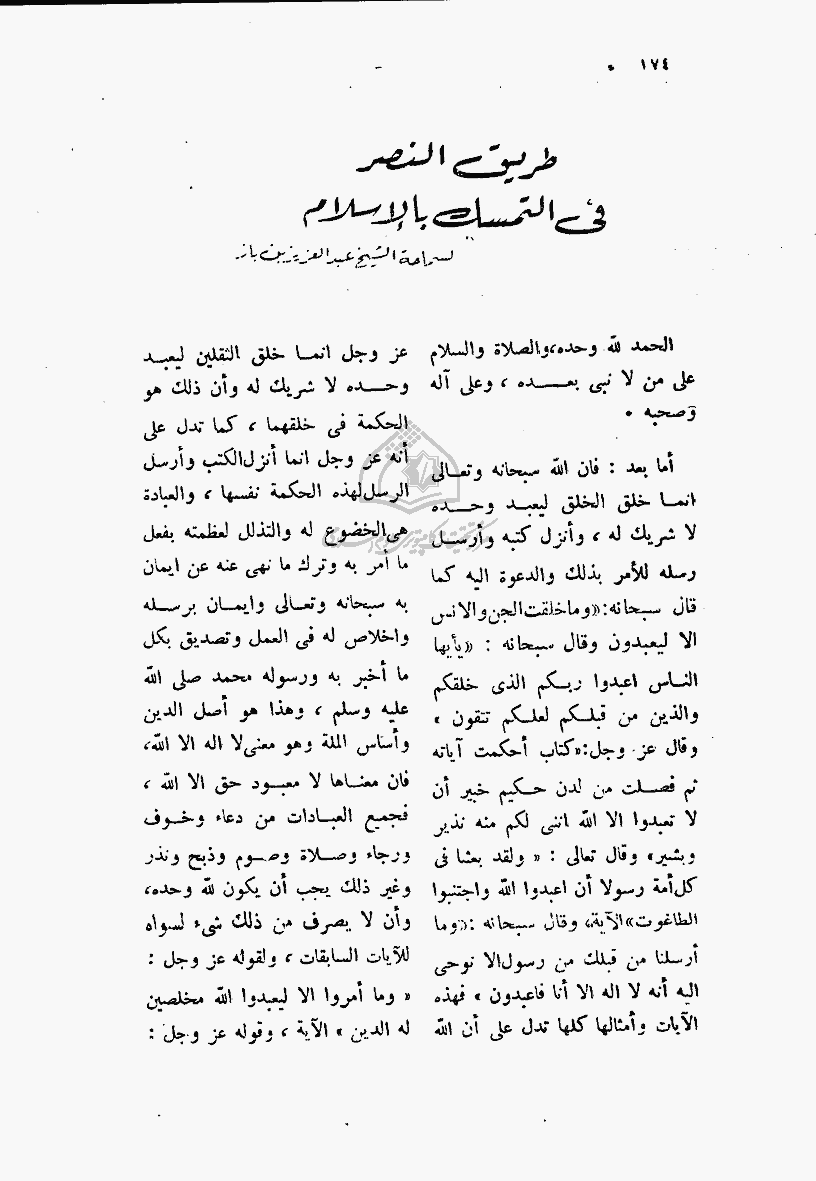 ١٧٤ •
طريق النصر
فى التمسك بالإسلام
لسماحة الشيخ عبد العزيز بن باز
الحمد لله وحده، والصلاة والسلام
على من لا نبى بعـــده ، وعلى آله
وصحبه •
أما بعد : فان الله سبحانه وتعـالى
انمـا خلق الخلق ليعبـد وحـــده
لا شريك له ، وأنزل كتبه وأرسـل
رسله للأمر بذلك والدعوة اليه كما
قال سبحانه: «وما خلقت الجن والانس
الا ليعبدون وقال سبحانه : «يأيها
النـاس اعبدوا ربـكم الذى خلقكم
والذين من قبلـكم لعلـكم تتقون »
وقال عز وجل: «كتاب أحكمت آياته
ثم فصـلت من لدن حـكيم خبير أن
لا تعبدوا الا الله اننى لكم منه نذير
وبشير» وقال تعالى : « ولقد بعثنا فى
كل أمة رسولا أن اعبدوا الله واجتنبوا
الطاغوت» الآية، وقال سبحانه : «وما
أرسلنا من قبلك من رسول الا نوحى
اليه أنه لا اله الا أنا فاعبدون » فهذه
الآيات وأمثالها كلها تدل على أن الله
عز وجل انمـا خلق الثقلين ليعبـد
وحـــده لا شريك له وأن ذلك هو
الحكمة فى خلقهما ، كما تدل على
أنه عز وجل انما أنزل الكتب وأرسل
الرسل لهذه الحكمة نفسها ، والعبادة
هى الخضوع له والتذلل لعظمته بفعل
ما أمر به وترك ما نهى عنه عن ايمان
به سبحانه وتعـالى وايمـان برسـله
واخلاص له فى العمل وتصديق بكل
ما أخبر به ورسوله محمد صلى الله
عليه وسلم ، وهذا هو أصل الدين
وأساس الملة وهو معنى لا اله الا الله،
فان معنـاها لا معبـود حق الا الله ،
فجميع العبـادات من دعاء وخـوف
ورجاء وصـلاة وصـوم وذبح ونذر
وغير ذلك يجب أن يكون لله وحده،
وأن لا يصرف من ذلك شىء لسواه
للآيات السابقات ، ولقوله عز وجل :
« وما أمروا الا ليعبدوا الله مخلصين
له الدين » الآية ، وقوله عز وجل :